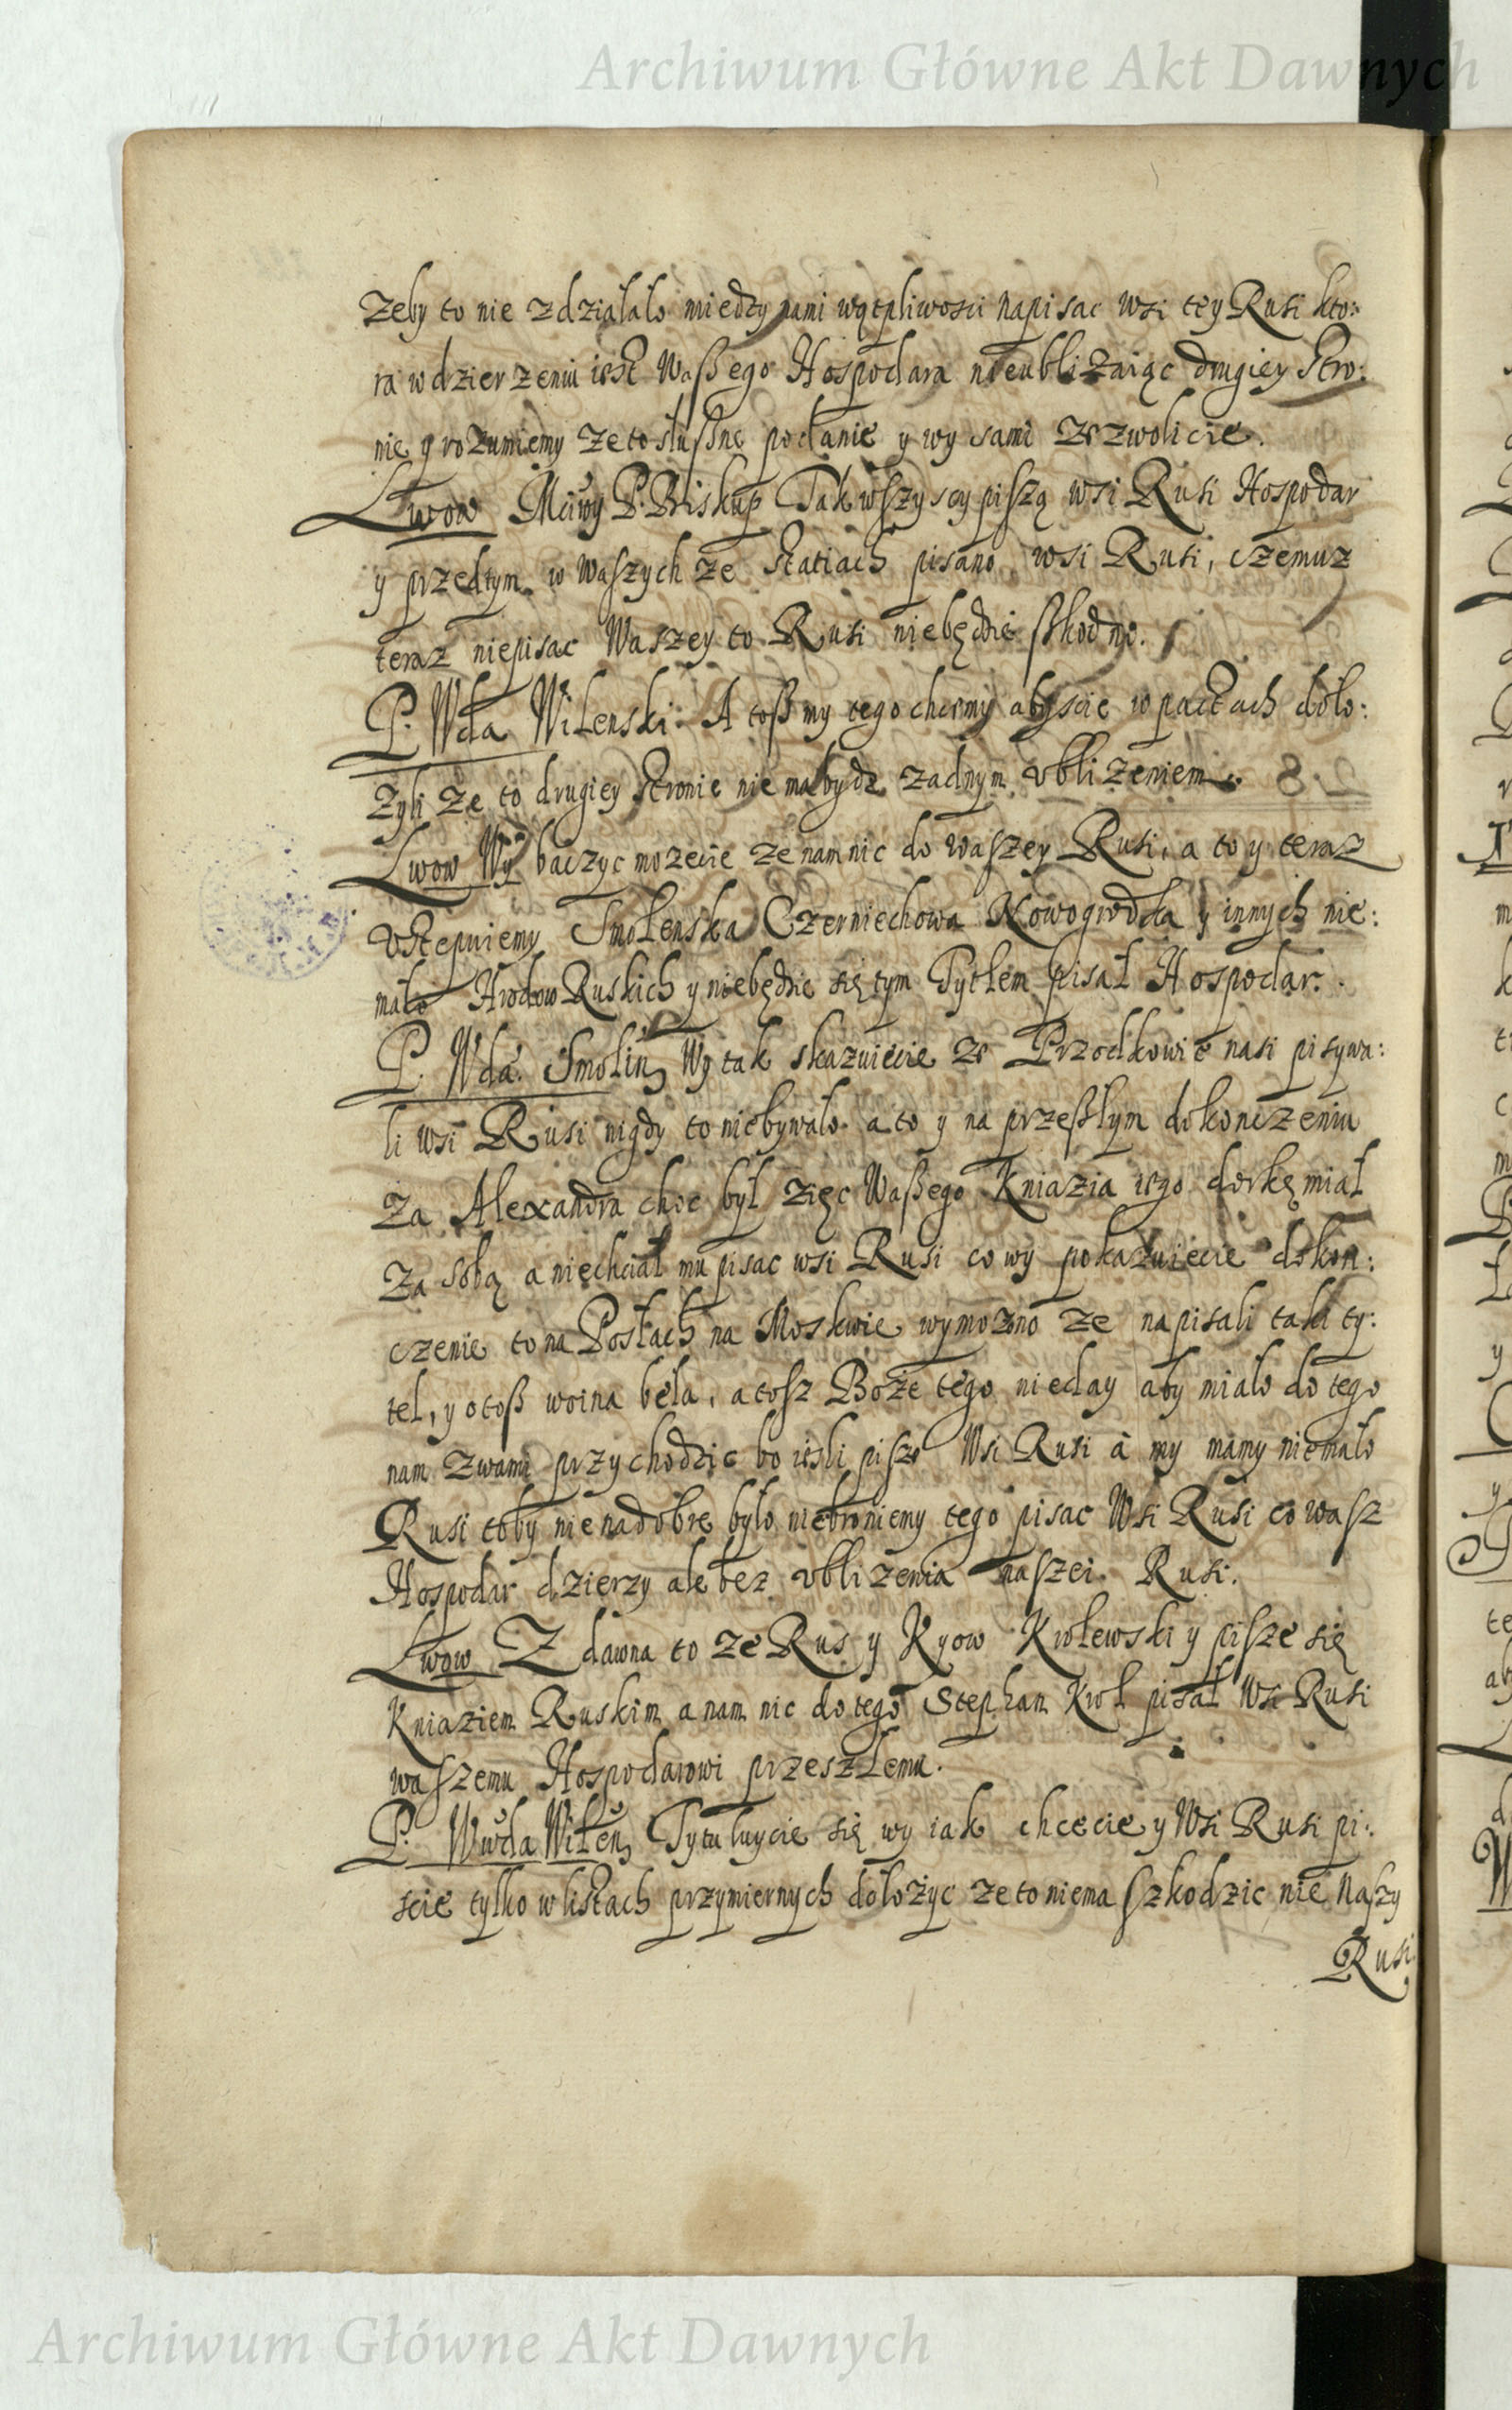 Archiwum Główne Akt Dawnych
Zeby to nie zdziałało miedzy nami wątpliwosci napisac wsi tey Rusi kto:
ra w dzierzeniu iest Waßego Hospodara nieubliżaiąc drugiey Stro:
nie y rozumiemy ze to słußne podanie y wy sami zezwolicie.
Lwow Mciwy P. Biskup Tak wszyscy piszą wsi Rusi Hospodar
y przedtym w waszych ze statiach pisano wsi Rusi, czemuz
teraz niepisac Waszey to Rusi niebędzie szkodno.
P. Wda Wilenski. A toß my tego chcemy abyscie w pactach doło:
żyli ze to drugiey stronie nie ma bydz zadnym ubliżeniem.
Lwow Wy baczyc mozecie ze nam nic do waszey Rusi, a to y teraz
Ustepuiemy Smolenska Czerniechowa Nowogrodka y innych nie:
mało Hrodow Ruskich y niebędzie się tym Tytłem pisał Hospodar.
P. Wda. Smolin, Wy tak skazuiecie ze Przodkowie nasi pisywa:
li wsi Rusi nigdy to niebywało a to y na przeßłym dokonczeniu
Za Alexandra choc był zięc Waßego Kniazia iego dorkę miał
Za sobą a niechciał mu pisac wsi Rusi co wy pokazuiecie dokon:
czenie to na Posłach na Moskwie wymożono ze napisali taki ty:
tel, y otoß woina beła, a tosz Boże tego nieday aby miało do tego
nam z wami przychodzic bo iesli pisze Wsi Rusi à my mamy niemało
Rusi toby nienadobre było niebroniemy tego pisac Wsi Rusi co wasz
Hospodar dzierzy ale bez ubliżenia naszei Rusi.
Lwow Z dawna to ze Rus y Kyow Krolewski y pisze się
Kniaziem Ruskim a nam nic do tego Stephan Krol pisał Wsi Rusi
waszemu Hospodarowi przeszłemu.
P. Wwda Wilen, Tytułuycie się wy iak chcecie y Wsi Rusi pi:
scie tylko w listach przymiernych dołożyc ze to niema szkodzic nie Naszy
Rusi
Archiwum Główne Akt Dawnych